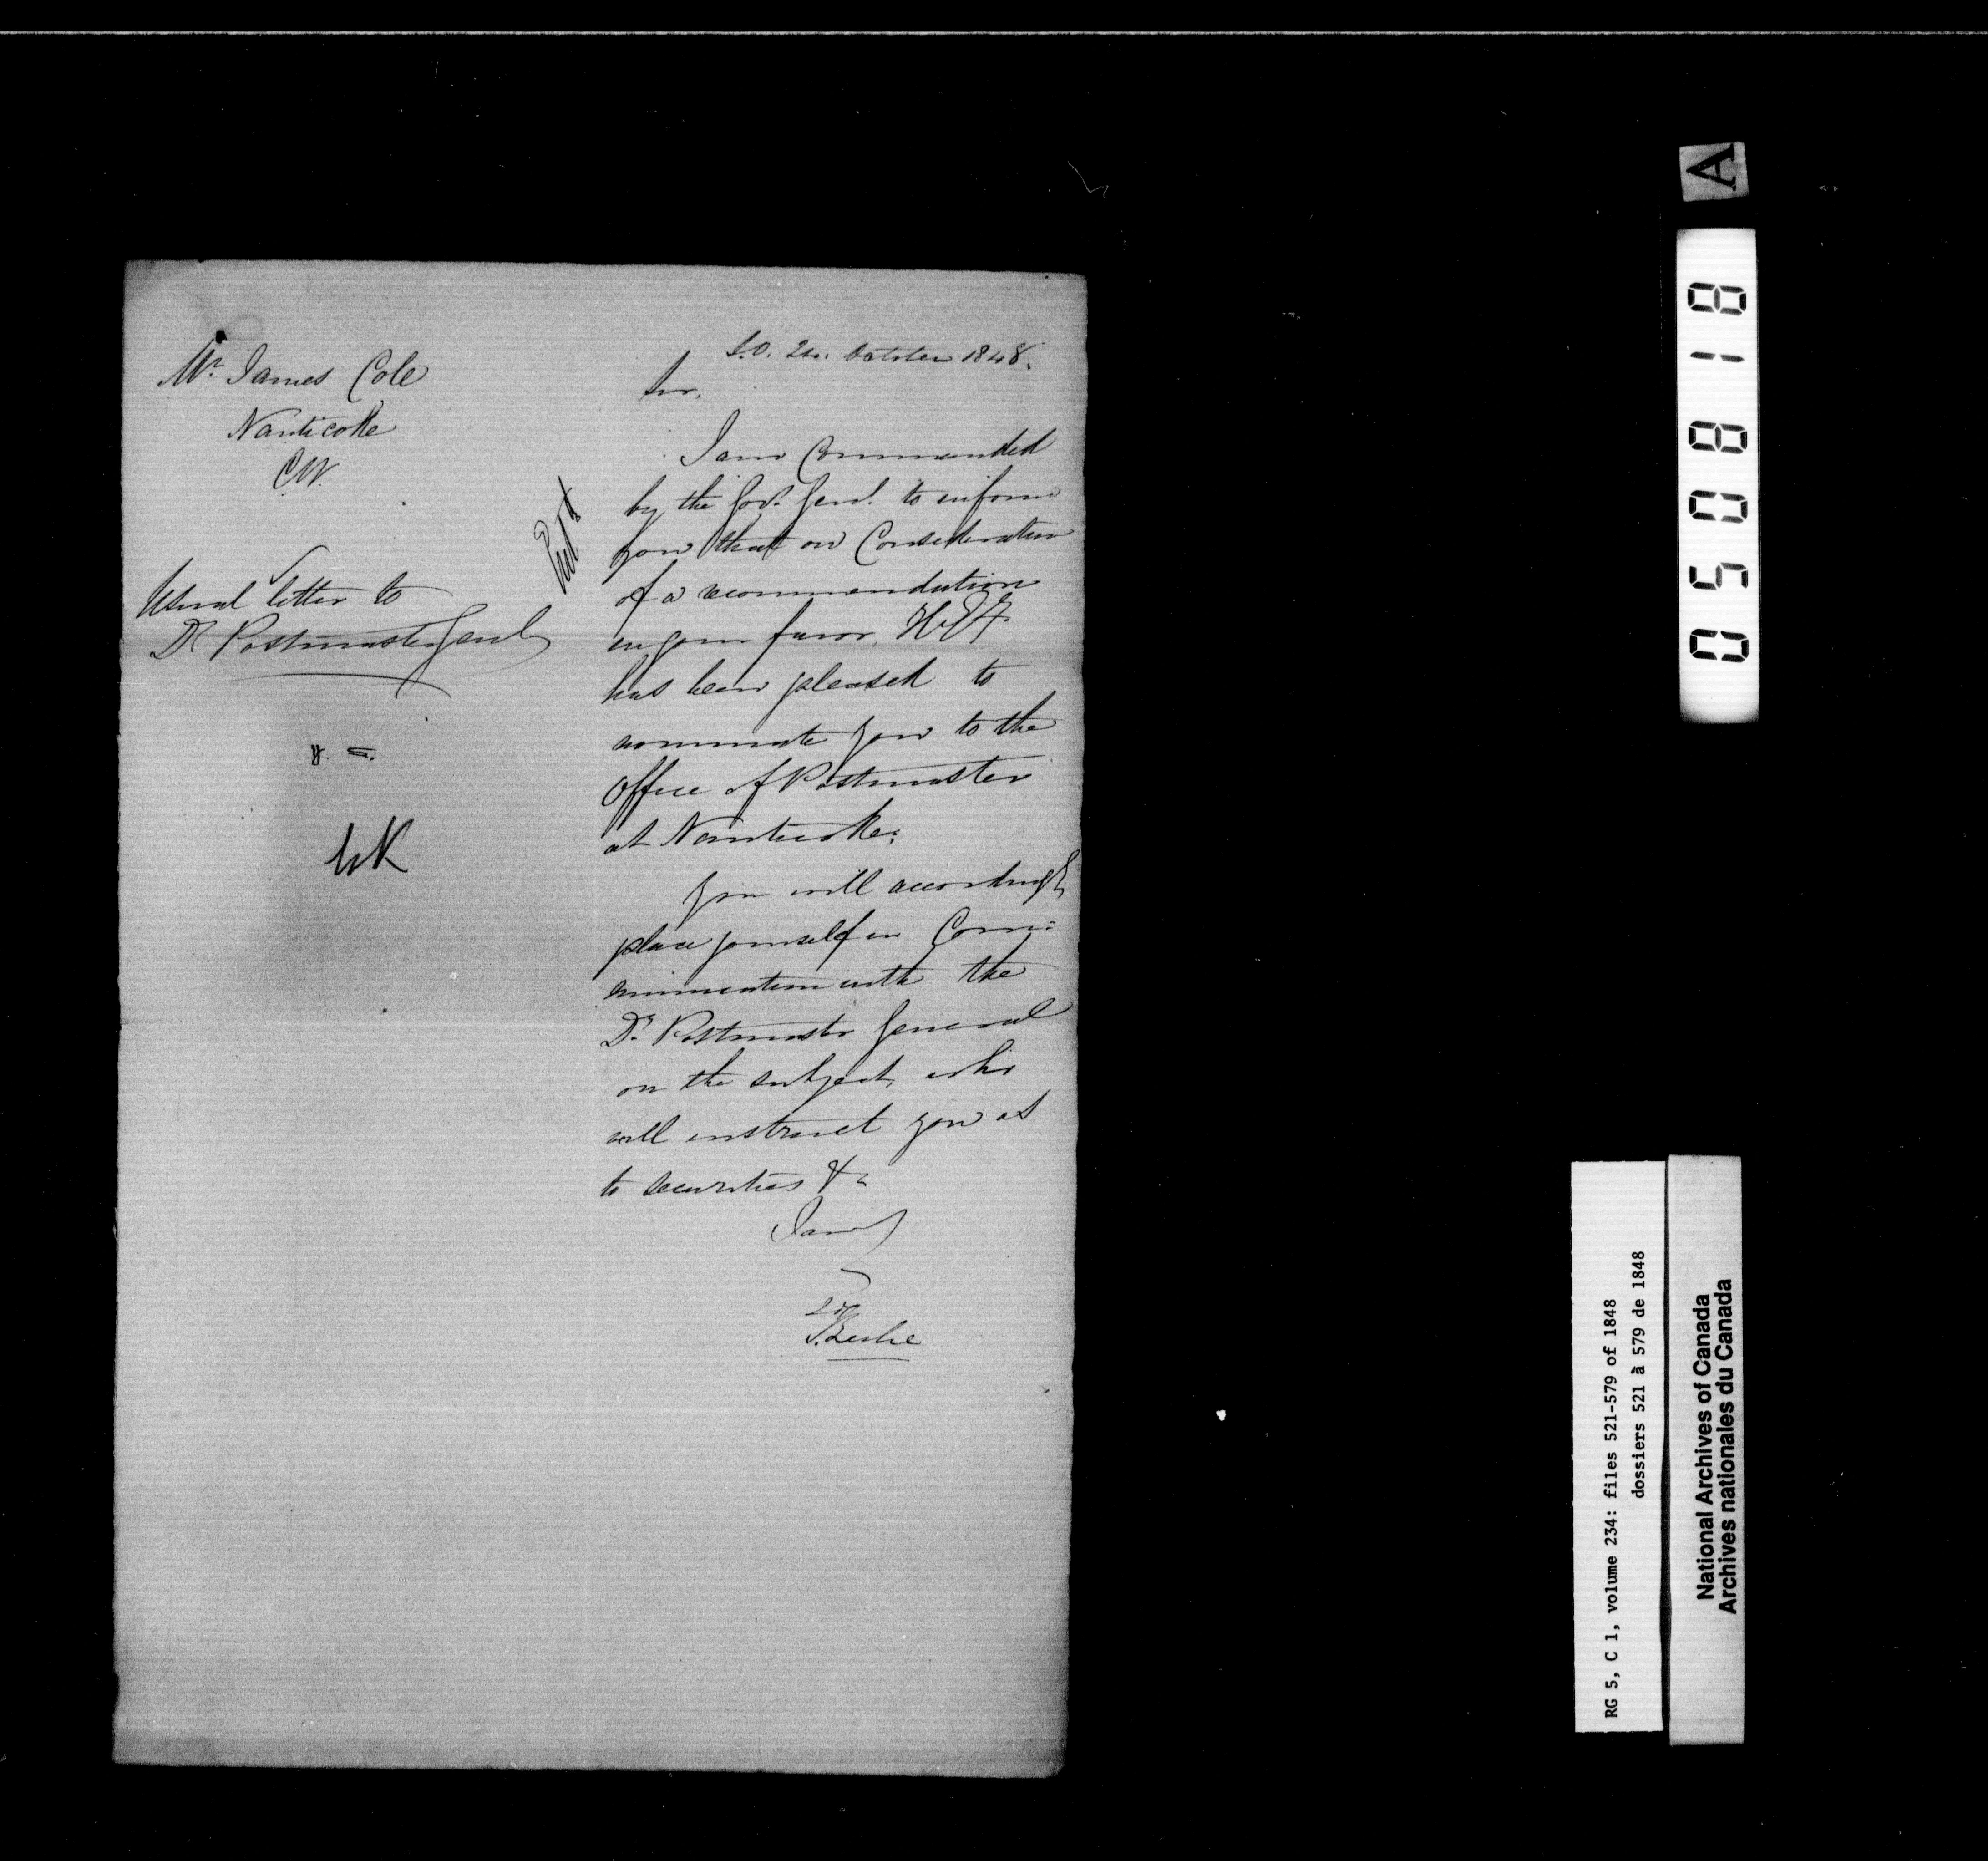 Mr. James Cole
Nanticoke
C.W.
Usual letter to
Dy Postmaster Genl
S.O. October 1848.
Sir,
I am Commanded
by the Gov. Genl. to inform
you that on Consideration
of a recommendation
in your favor, H. Ex.
has been pleased to
nominate you to the
Office of Postmaster
at Nanticoke.
You will accordingly
place yourself in Com=
munication with the
Dy. Postmaster General
on the subject, who
will instruct you as
to securities &c
I am
J. Leslie
A
0508818
RG 5, C 1, volume 234: files 521-579 of 1848
dossiers 521 à 579 de 1848
National Archives of Canada
Archives nationales du Canada